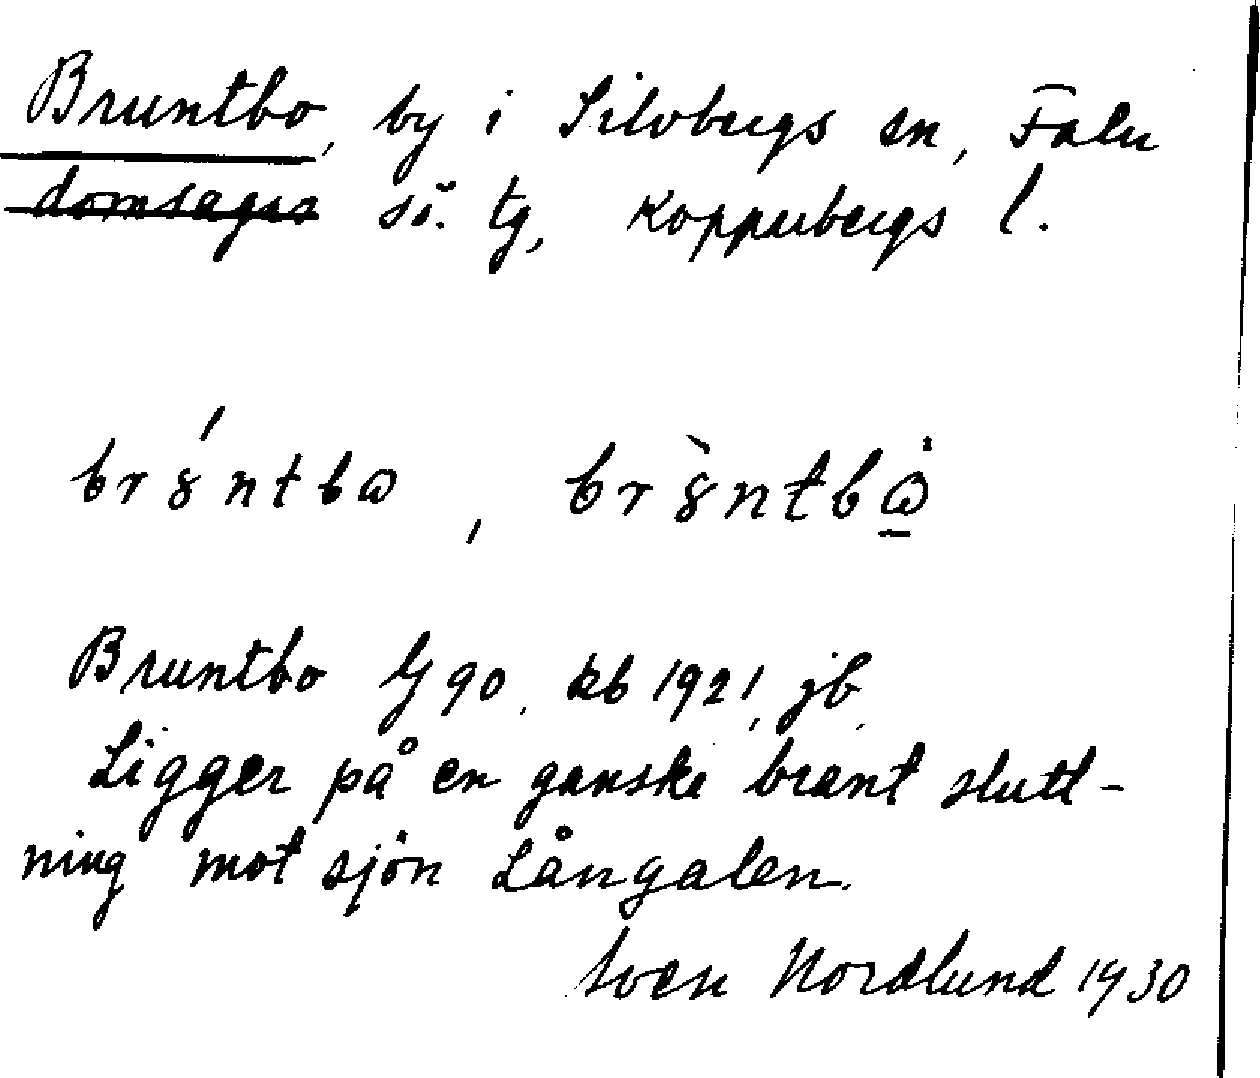 Bruntbo, by i Silvbergs sn, Falu
domsagas sö. tg, Kopparbergs l.
bro̗ntbɷ, bro̖ntbɷ̱̇
Bruntbo G 90, kb 1921, jb.
Ligger på en ganske brant slutt-
ning mot sjön Långalen.
Sven Nordlund 1930